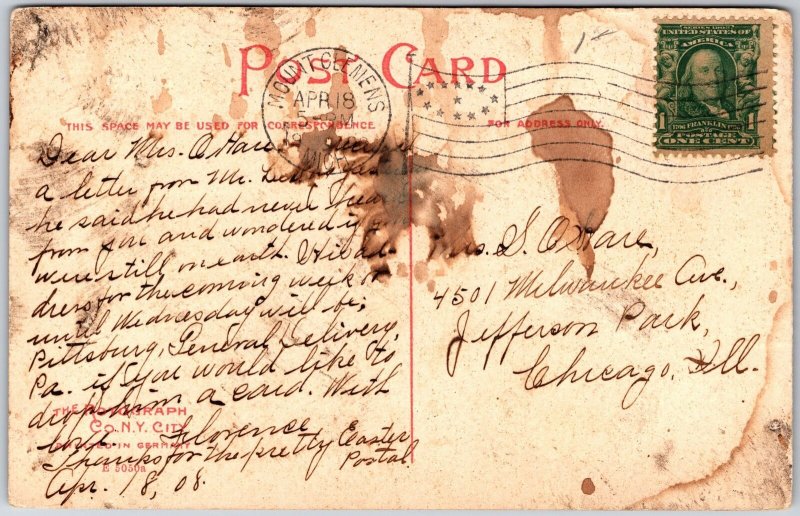 POST CARD
MOUNT CLEMENS
APR 18
MICH
SERIES 1902
UNITED STATES OF
AMERICA
1 1
1706 FRANKLIN 1790
POSTAGE
ONE CENT
THIS SPACE MAY BE USED FOR CORRESPONDENCE
FOR ADDRESS ONLY.
Dear Mrs. O'Hare
a letter from Mr.
he said he had never hear
from you and wondered if
were still on earth. His ad-
dress for the coming week or
until Wednesday will be;
Pittsburg, General Delivery,
Pa. if you would like to
drop him a card. With
love. Florence
Thanks for the pretty Easter
Postal
Apr. 18, 08.
Mrs. S. O'Hare,
4501 Milwaukee Ave.,
Jefferson Park,
Chicago, Ill.
THE ROTOGRAPH
CO. N.Y. CITY
PRINTED IN GERMANY
E 5050a